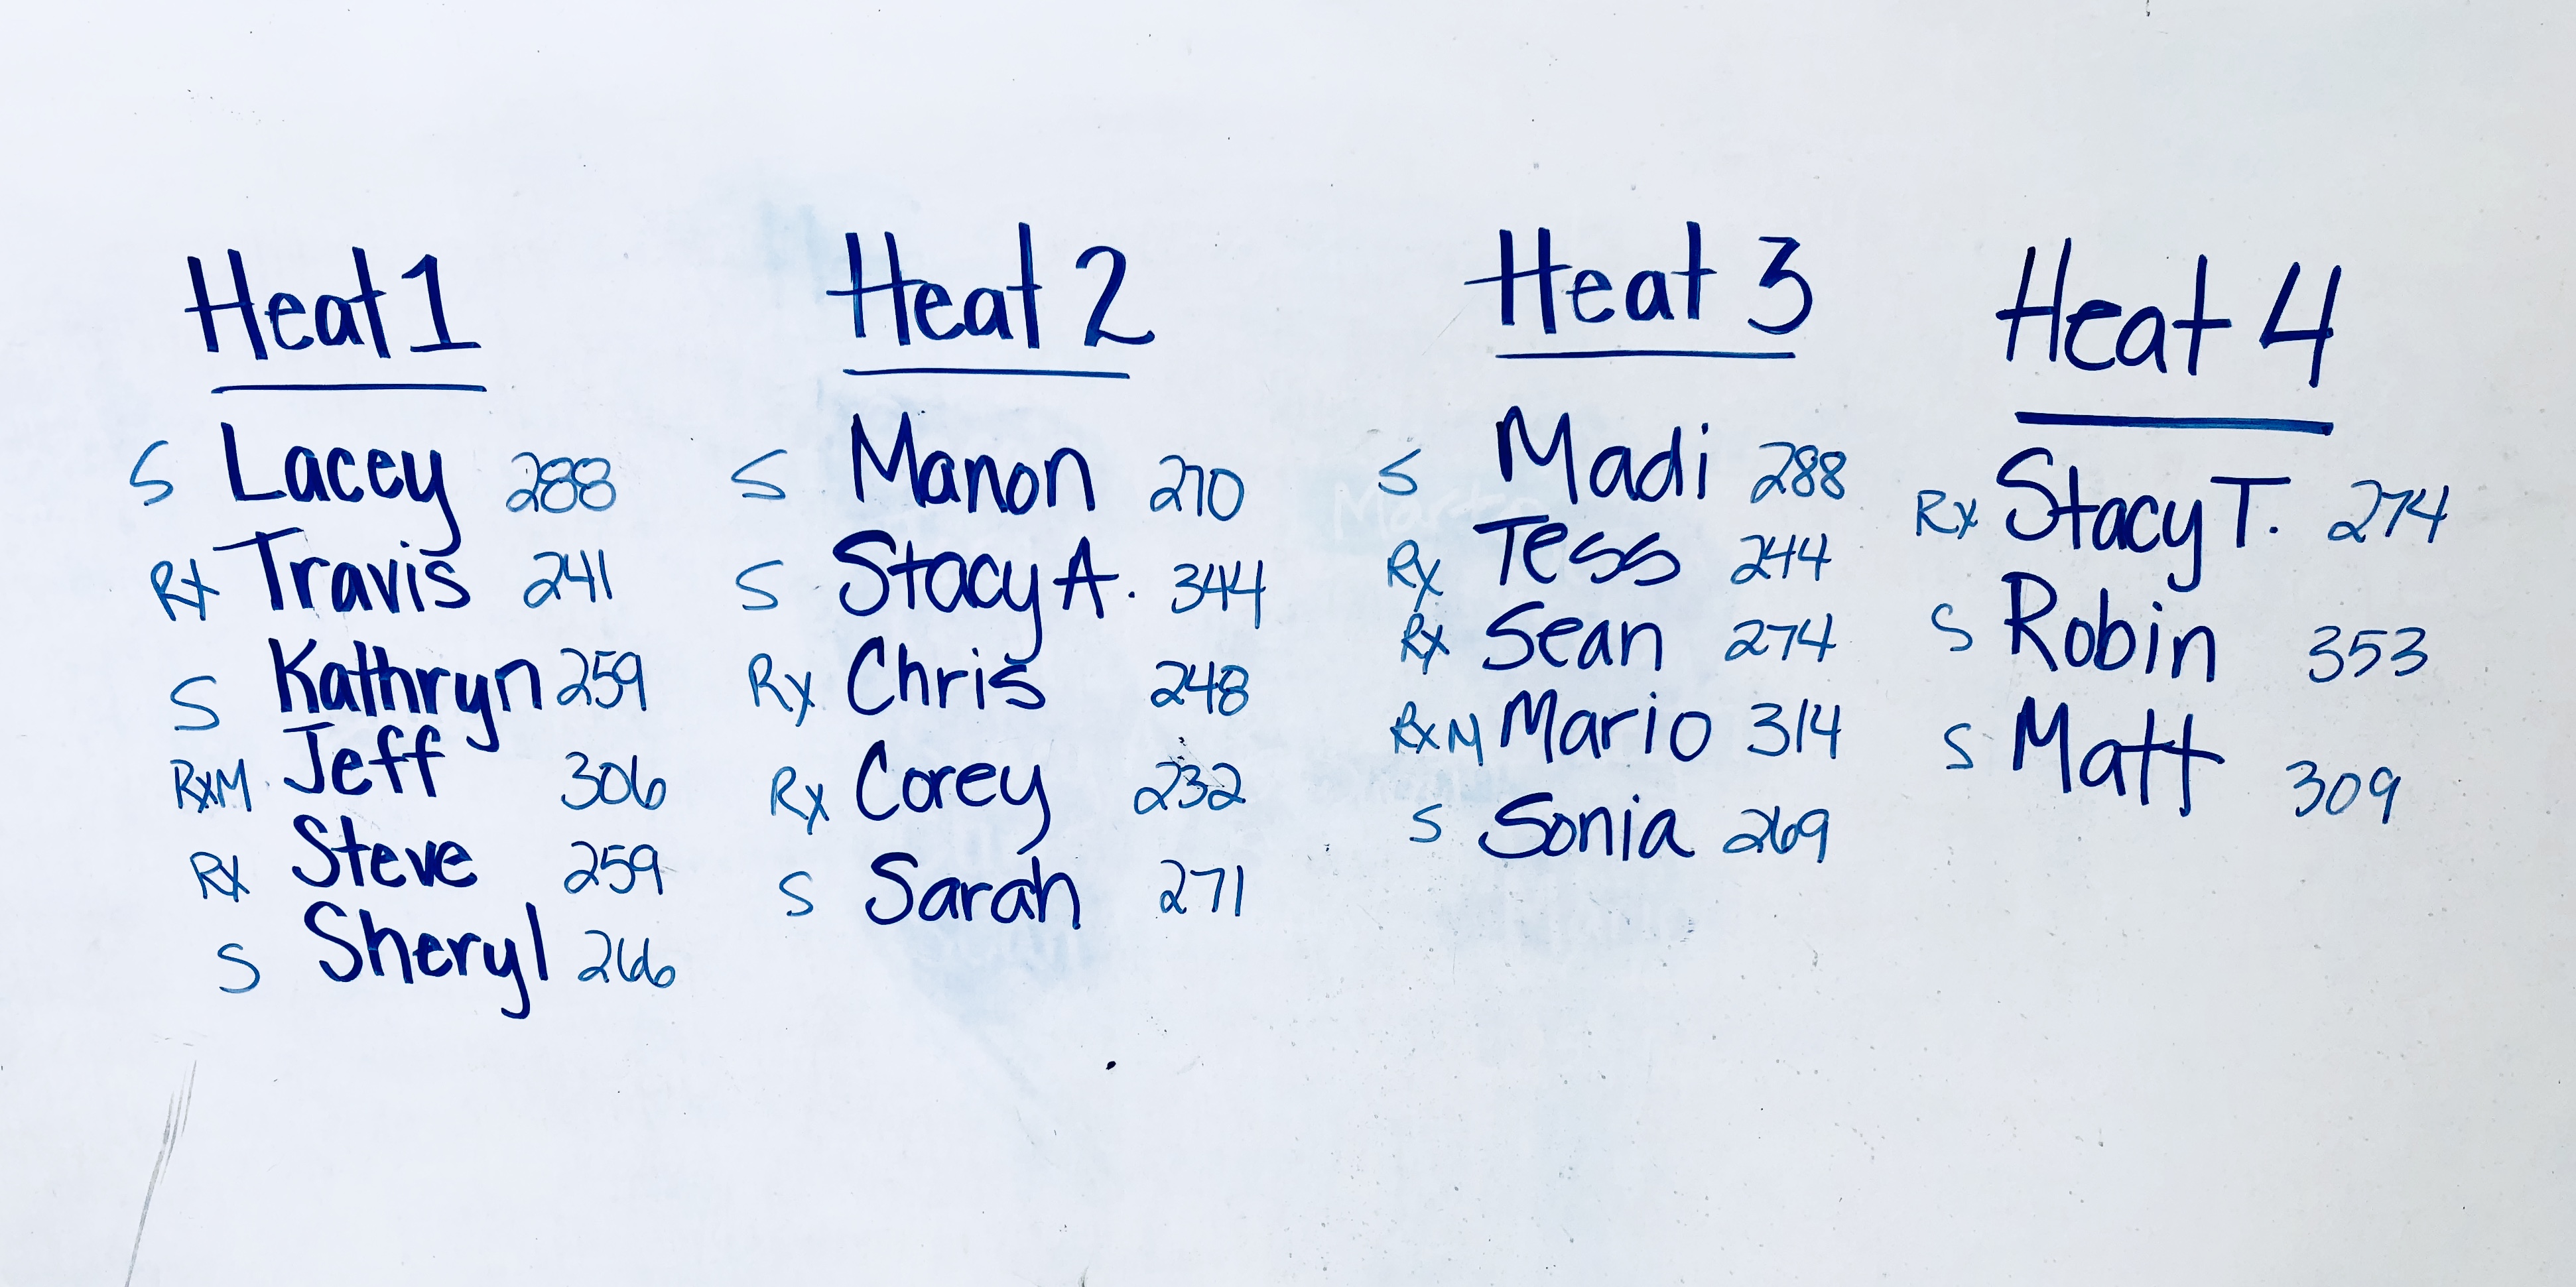 Heat 1
S Lacey 288
Rx Travis 241
S Kathryn 259
RxM Jeff 306
Rx Steve 259
S Sheryl 266
Heat 2
S Manon 270
S Stacy A. 344
Rx Chris 248
Rx Corey 232
S Sarah 271
Heat 3
S Madi 288
Rx Tess 244
Rx Sean 274
RxM Mario 314
S Sonia 269
Heat 4
Rx Stacy T. 274
S Robin 353
S Matt 309